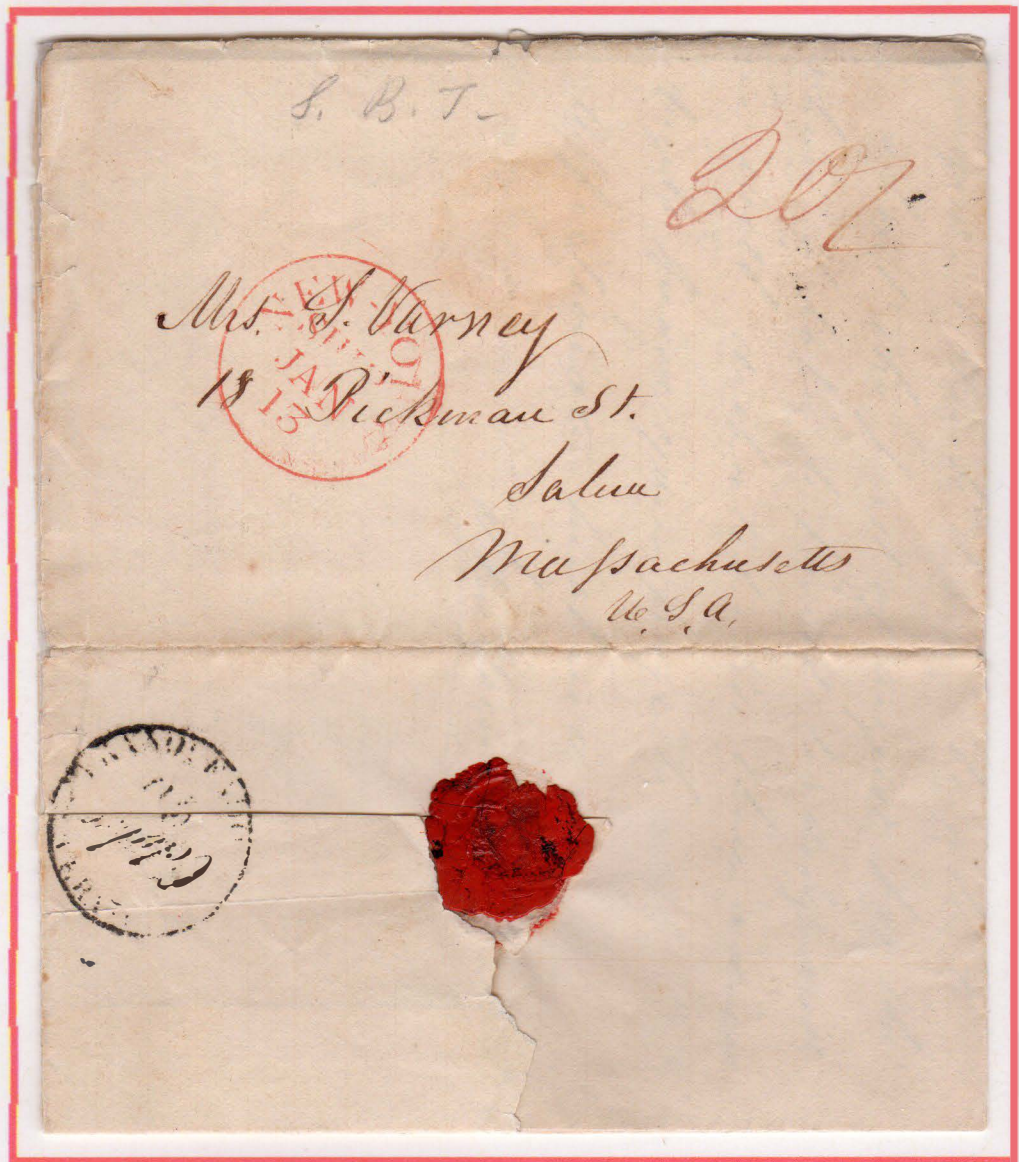 S. B. T.
20
NEW YORK
SHIP
JAN
13
Mrs. S. Varney
18 Pickman St.
Salem
Massachusetts
U. S. A.